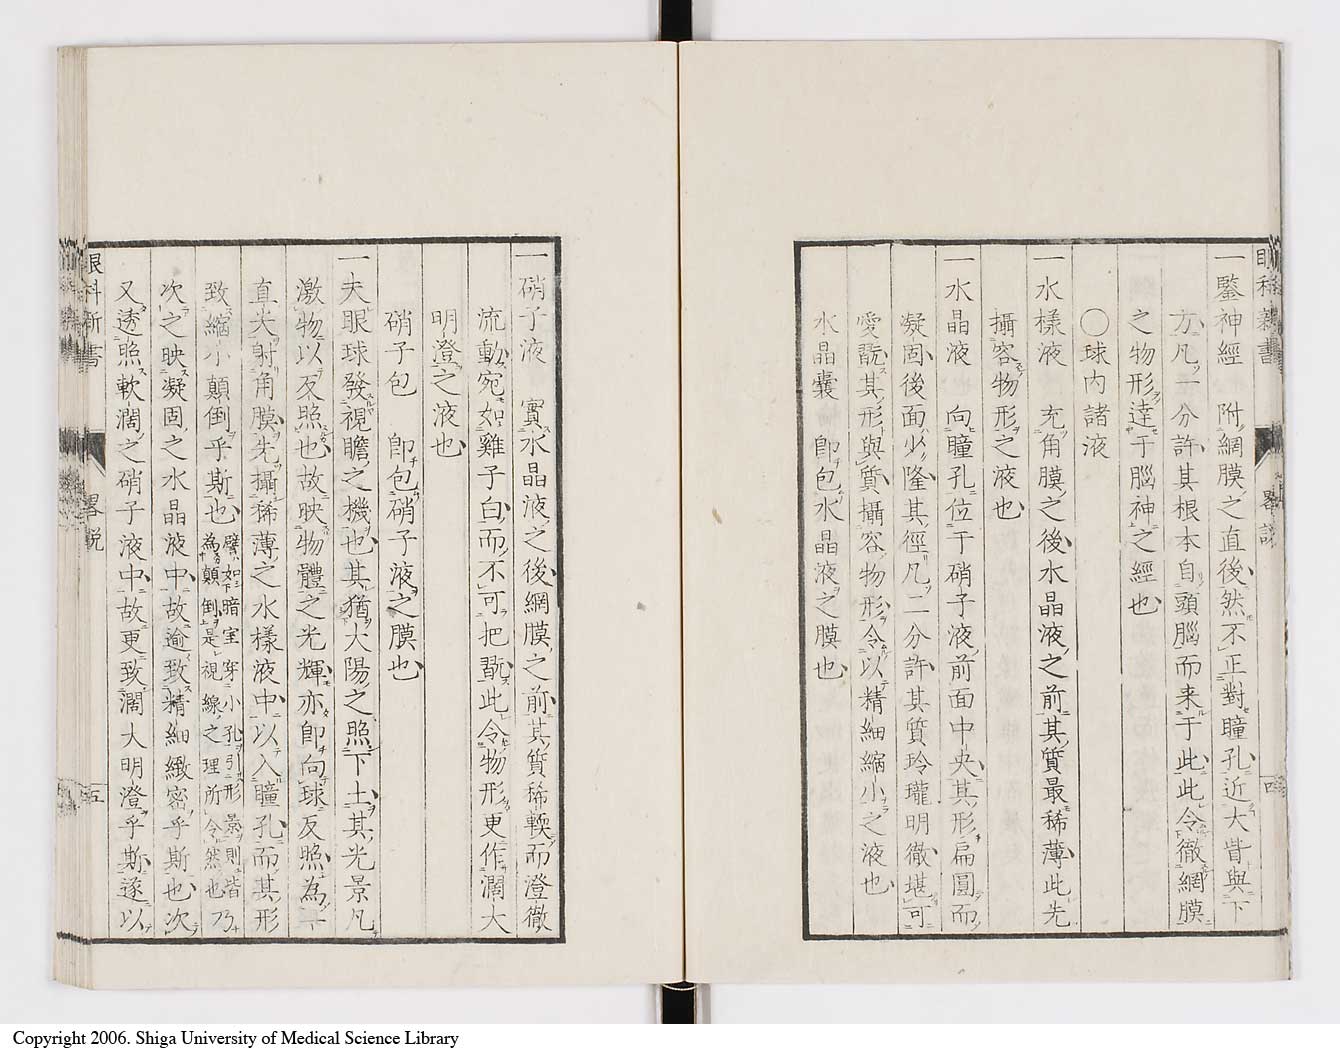 眼科新書
畧説
四
一鑒神經　附網膜之直後然不正對瞳孔近大眥與下
方凡一分許其根本自頭腦而来于此此令徹網膜
之物形達于腦神之經也
〇球内諸液
一水樣液　充角膜之後水晶液之前其質最稀薄此先
攝容物形之液也
一水晶液　向瞳孔位于硝子液前面中央其形扁圓而
凝固後面少隆其徑凡二分許其質玲瓏明徹堪可
愛翫其形與質攝容物形令以精細縮小之液也
水晶囊　卽包水晶液之膜也
一硝子液　實水晶液之後網膜之前其質稀輭而澄徹
流動宛如雞子白而不可把翫此令物形更作濶大
明澄之液也
硝子包　卽包硝子液之膜也
一夫眼球發視瞻之機也其猶大陽之照下土其光景凡
激物以反照也故映物體之光輝亦卽向球反照為一
直光射角膜先攝稀薄之水樣液中以入瞳孔而其形
致縮小顛倒乎斯也譬如暗室穿小孔引形景則皆乃
為顛倒是視線之理所令然也
次之映凝固之水晶液中故逾致精細緻密乎斯也次
又透照軟濶之硝子液中故更致濶大明澄乎斯遂以
眼科新書
畧説
五
Copyright 2006. Shiga University of Medical Science Library